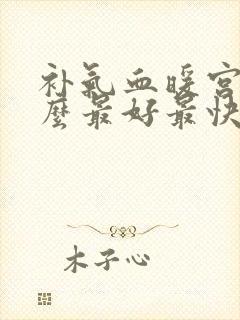 补氣血暖宫
麼最好最快
木子心